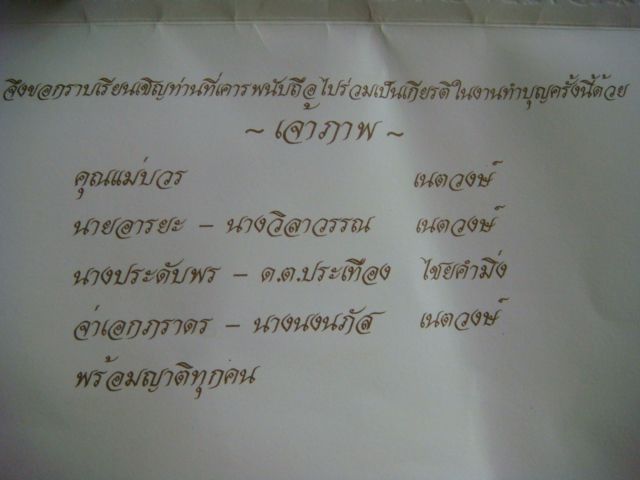 จึงขอกราบเรียนเชิญท่านที่เคารพนับถือไปร่วมเป็นเกียรติในงานทำบุญครั้งนี้ด้วย
~ เจ้าภาพ ~
คุณแม่บวร เนตวงษ์
นายอารยะ - นางวิลาวรรณ เนตวงษ์
นางประดับพร - ด.ต.ประเทือง ไชยคำมิ่ง
จ่าเอกภราดร - นางนงนภัส เนตวงษ์
พร้อมญาติทุกคน